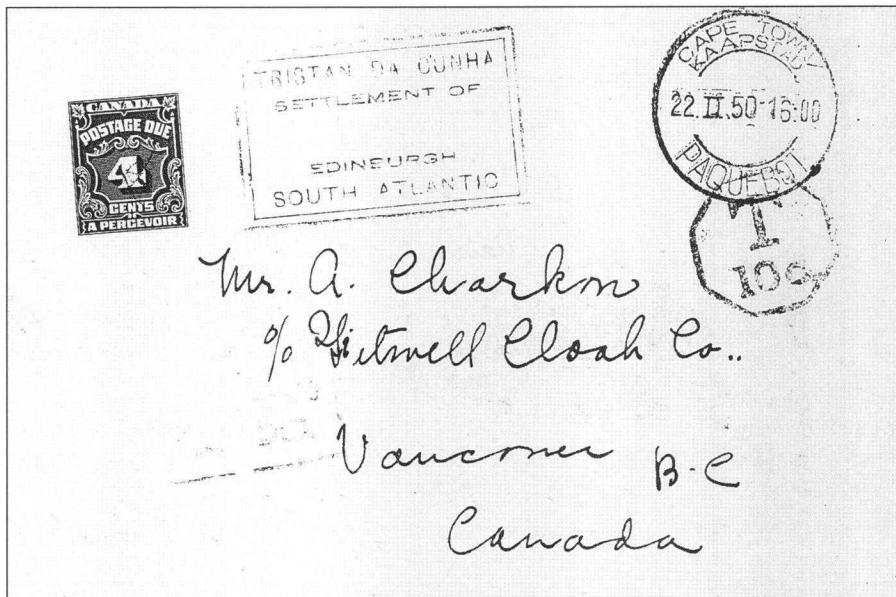 CANADA
POSTAGE DUE
4
CENTS
A PERCEVOIR
TRISTAN DA CUNHA
SETTLEMENT OF
EDINBURGH
SOUTH ATLANTIC
CAPE TOWN
KAAPSTAD
22.II.50-16:00
PAQUEBOT
T
10c
Mr. A. Clarkson
c/o Fitwell Cloak Co..
Vancouver B-C
Canada